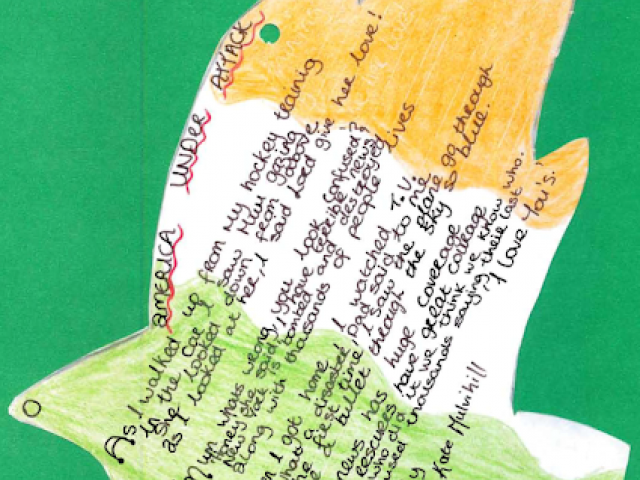 AMERICA UNDER ATTACK
As I walked up from My hockey trainig
In the car I saw Mum gasing
She looked down from above
as I looked at her, I said Lord give her love!
Mum whats wrong, you look confused?
Honey she said, I have terrible news
New York is bombed and destroyed
along with thousands of people lives
I got home I watched T.V.
What a disaster, Dad said to me
The first time, I saw the plane go through
a bullet through the sky so blue.
news has huge coverage
rescuers have great courage
who did it we think we know
thousands saying, their last who.
I love You's.
Kate Mulvihill